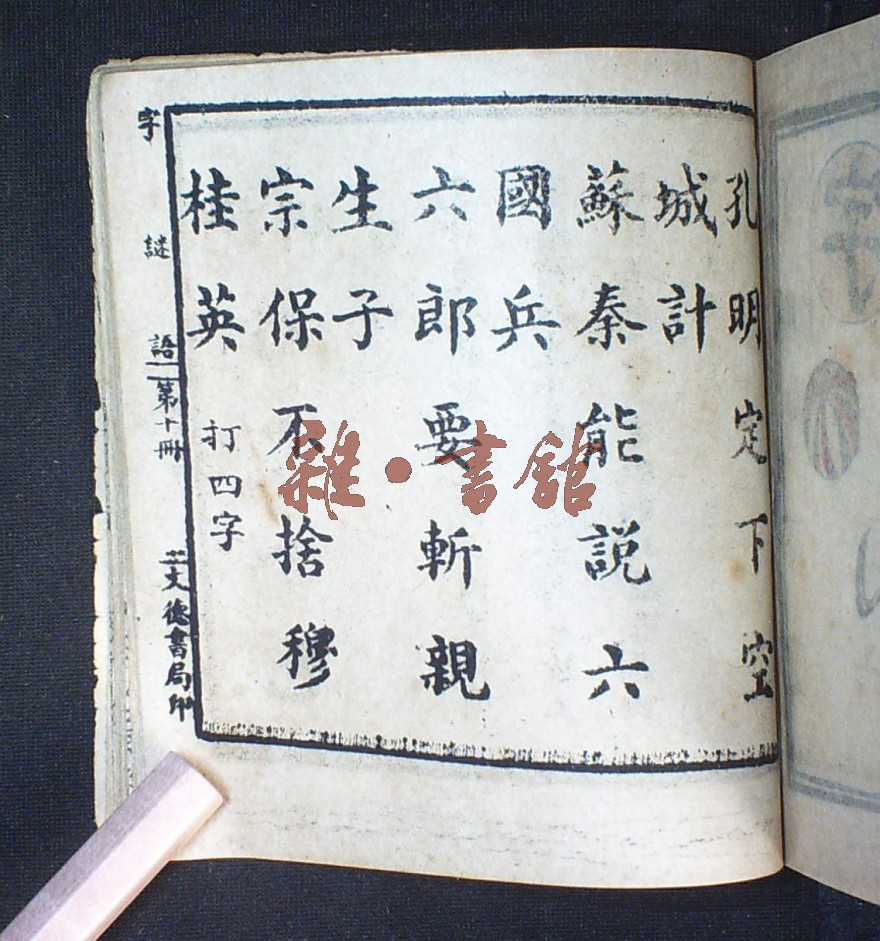 孔明定下空
城計
蘇秦能説六
國兵
六郎要斬親
生子
宗保不捨穆
桂英
打四字
字謎語
第十冊
文德書局印
雜·書館